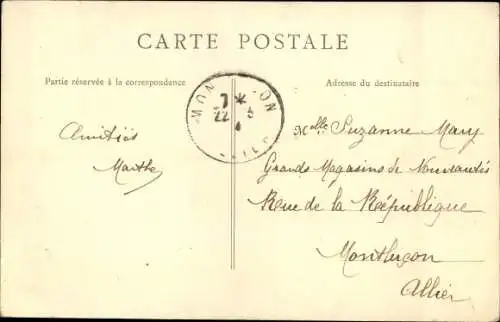 CARTE POSTALE
Partie réservée à la correspondance
Adresse du destinataire
MON ON
7 *
22 3
4
Amitiés
Marthe
Melle Suzanne Mary
Grands Magasins de Nouveautés
Rue de la République
Montluçon
Allier